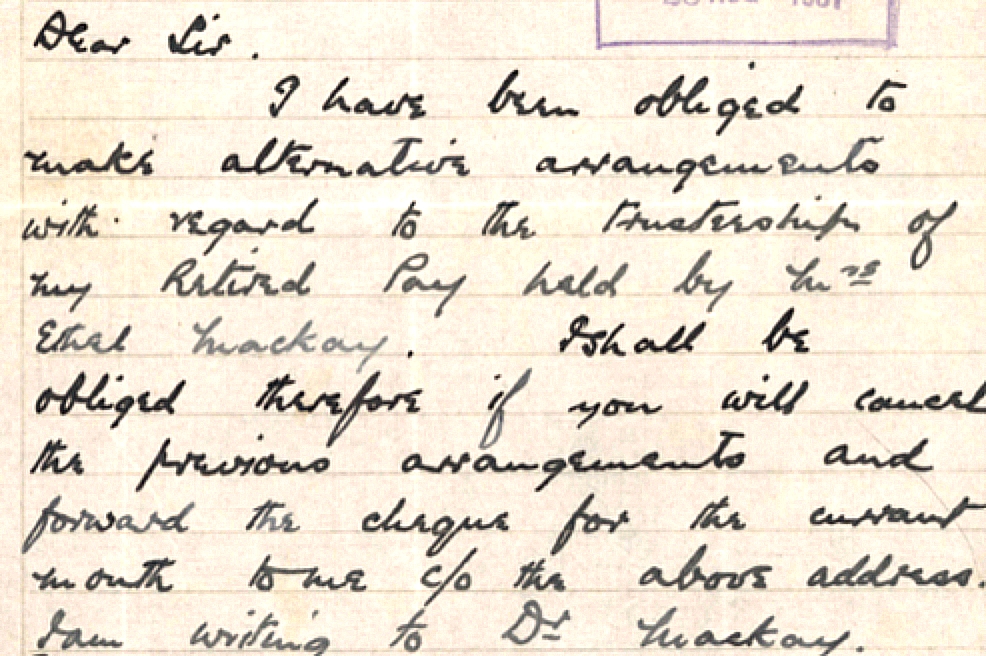 Dear Sir.
I have been obliged to
make alternative arrangements
with regard to the trusteeship of
my Retired Pay held by Mrs
Ethel Mackay. I shall be
obliged therefore if you will cancel
the previous arrangements and
forward the cheque for the current
month to me c/o the above address.
I am writing to Dr Mackay.